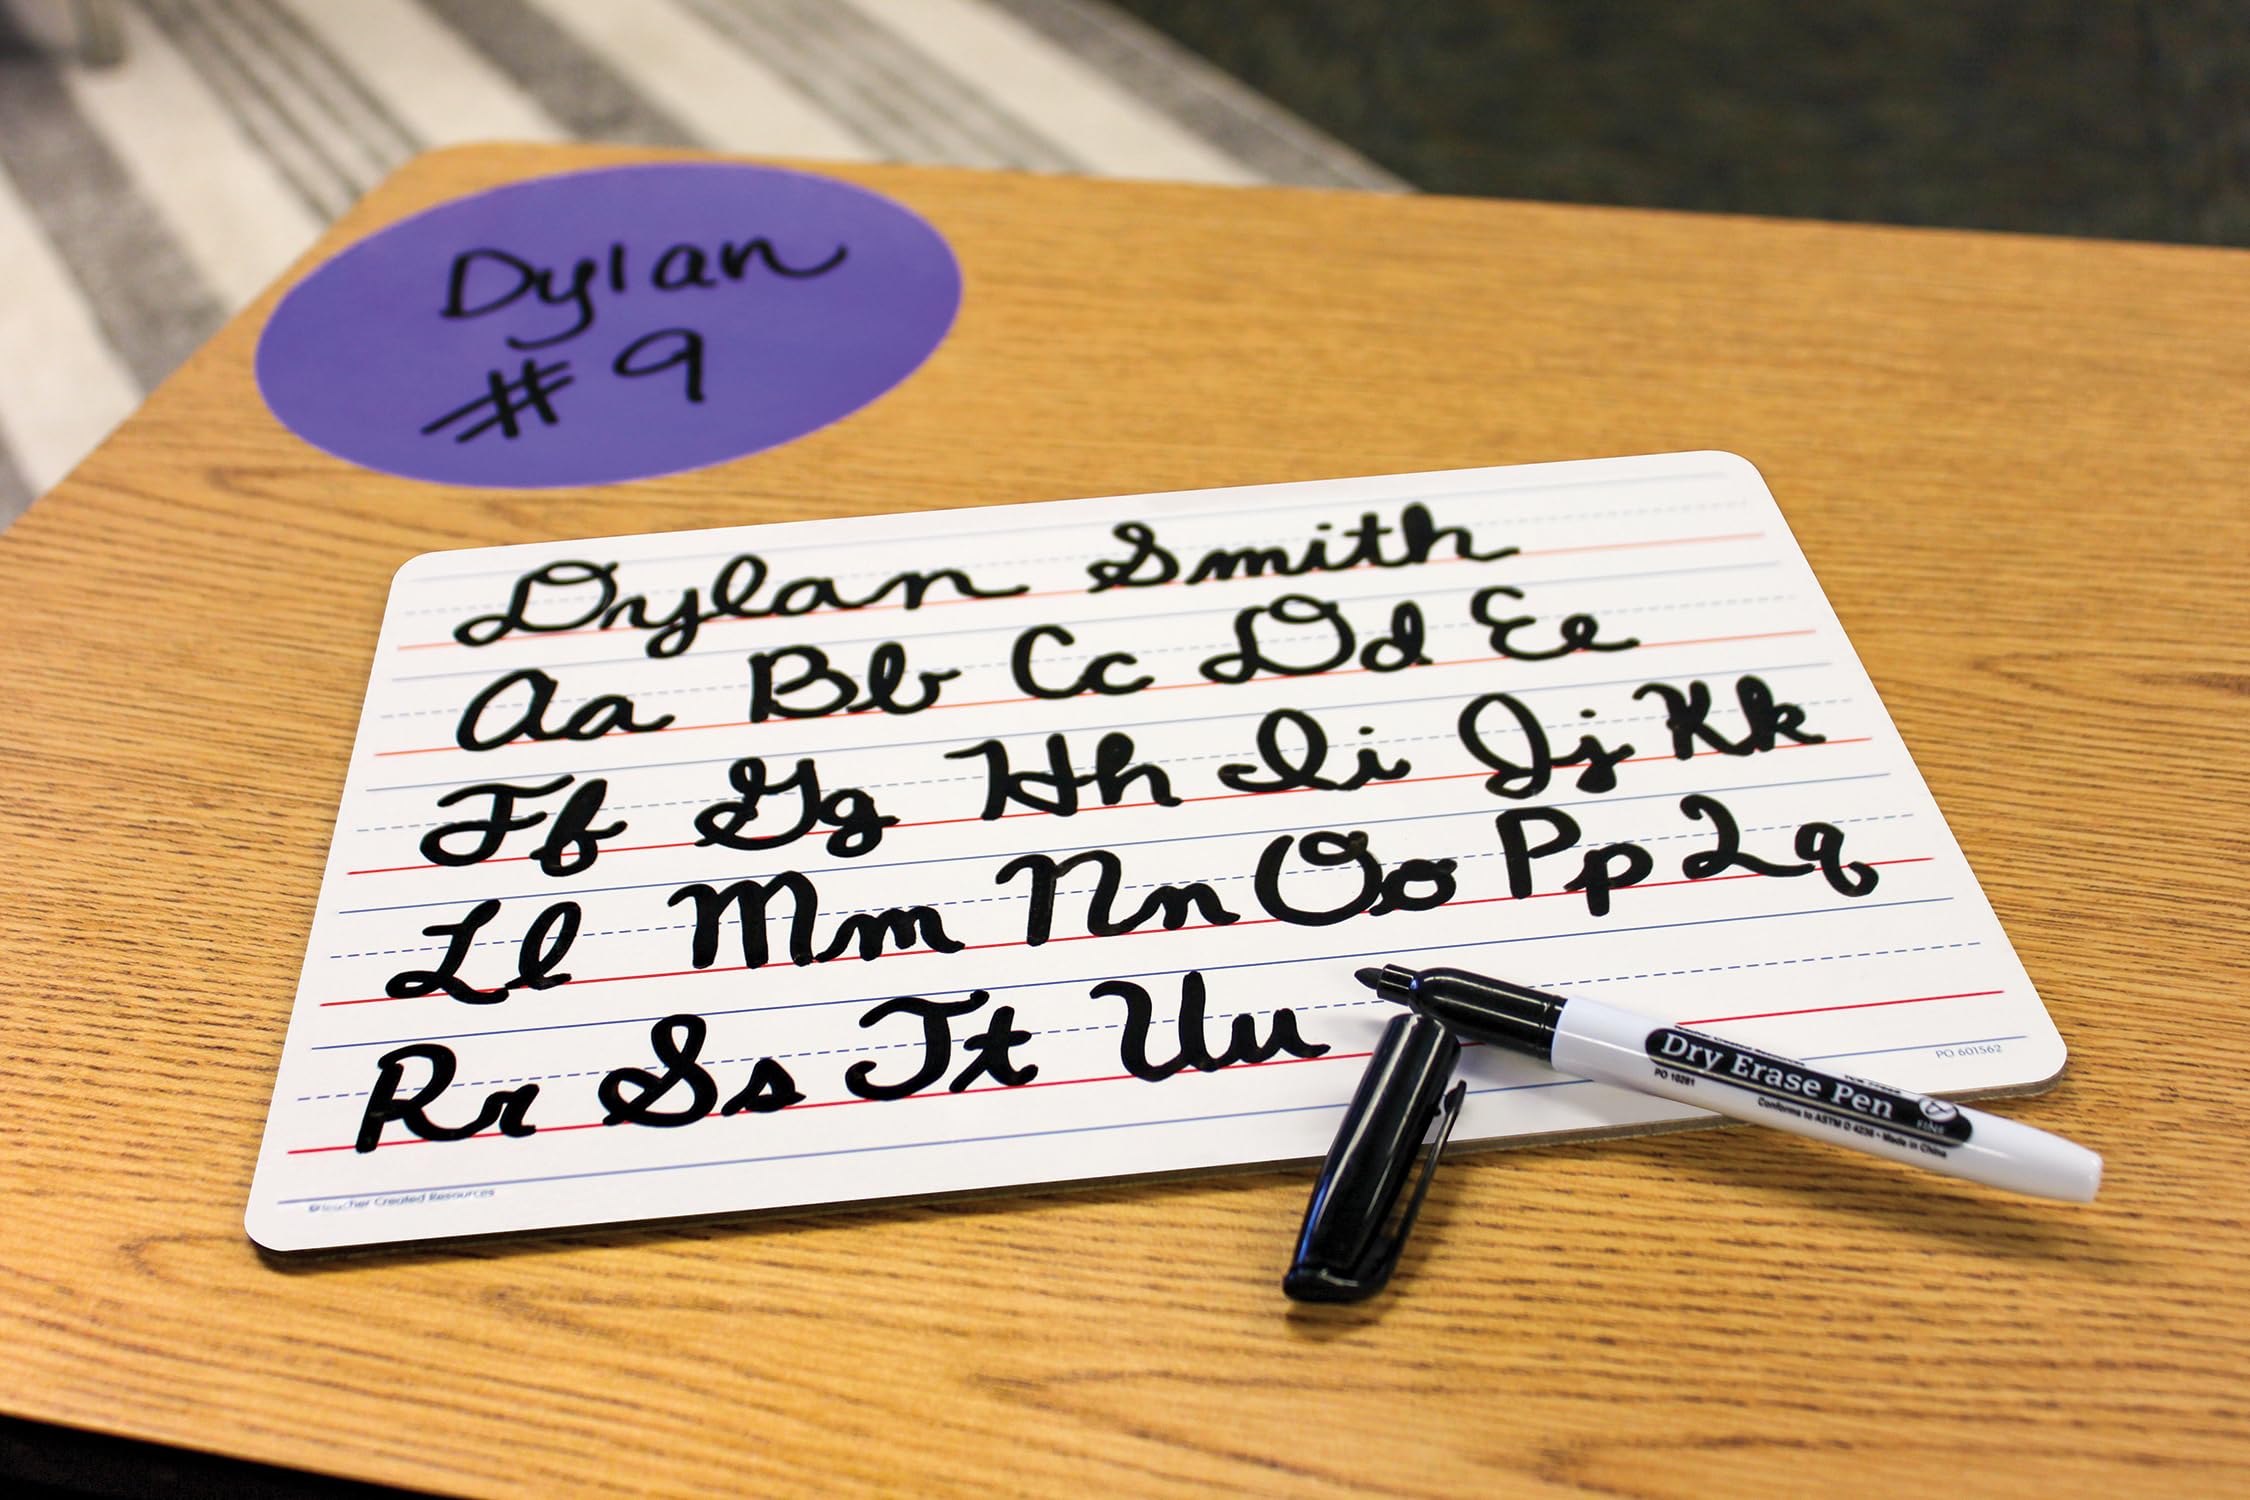 Dylan
#9
Dylan Smith
Aa Bb Cc Dd Ee
Ff Gg Hh Ii Jj Kk
Ll Mm Nn Oo Pp Qq
Rr Ss Tt Uu
PO 601562
©Teacher Created Resources
Dry Erase Pen
PO 10281
FINE
Conforms to ASTM D 4236 • Made in China